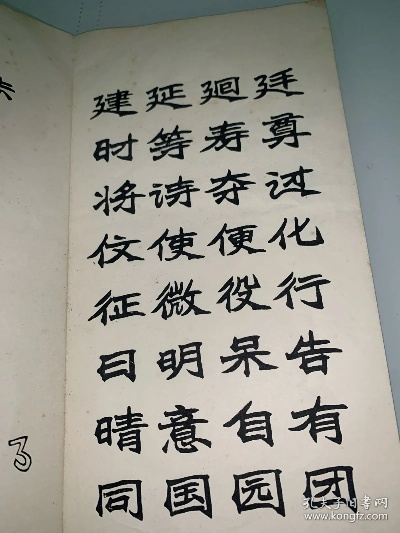 建延廻廷
时等寿尊
将诗夺过
伩使便化
征微役行
日明呆告
晴意自有
同国园团
3
孔夫子旧书网
www.kongfz.com